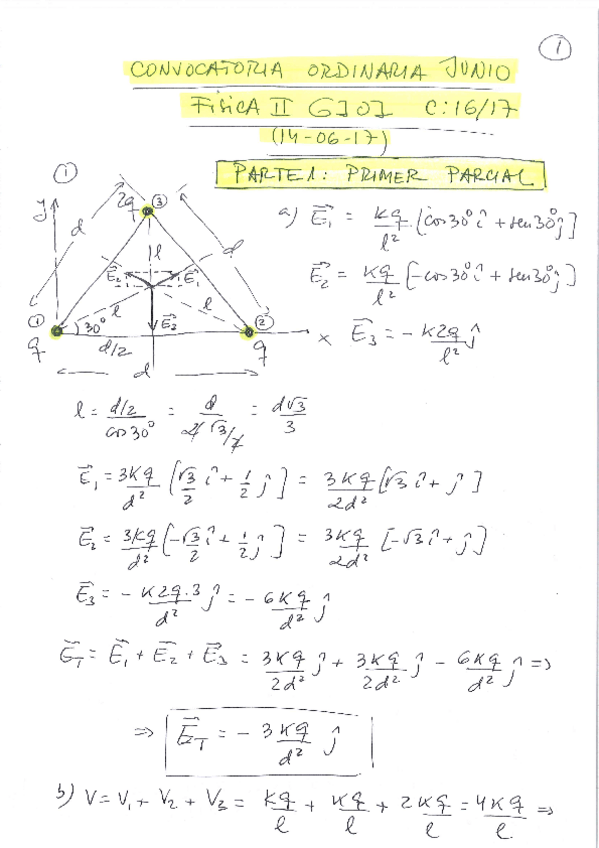 1
CONVOCATORIA ORDINARIA JUNIO
FÍSICA II GIOI C:16/17
(14-06-17)
PARTE 1: PRIMER PARCIAL
①
y
2q ③
d
d
l
E⃗₂ E⃗₁
l l
E⃗₃
① 30° ②
q d/2 q x
d
a) E⃗₁ = kq/l² [cos30° î + sen30° ĵ]
E⃗₂ = kq/l² [-cos30° î + sen30° ĵ]
E⃗₃ = - k2q/l² ĵ
l = (d/2)/cos30° = d/(2√3/2) = d√3/3
E⃗₁ = 3kq/d² [√3/2 î + 1/2 ĵ] = 3kq/2d² [√3 î + ĵ]
E⃗₂ = 3kq/d² [-√3/2 î + 1/2 ĵ] = 3kq/2d² [-√3 î + ĵ]
E⃗₃ = - k2q·3/d² ĵ = - 6kq/d² ĵ
E⃗_T = E⃗₁ + E⃗₂ + E⃗₃ = 3kq/2d² ĵ + 3kq/2d² ĵ - 6kq/d² ĵ ⇒
⇒ E⃗_T = - 3kq/d² ĵ
b) V = V₁ + V₂ + V₃ = kq/l + kq/l + 2kq/l = 4kq/l ⇒